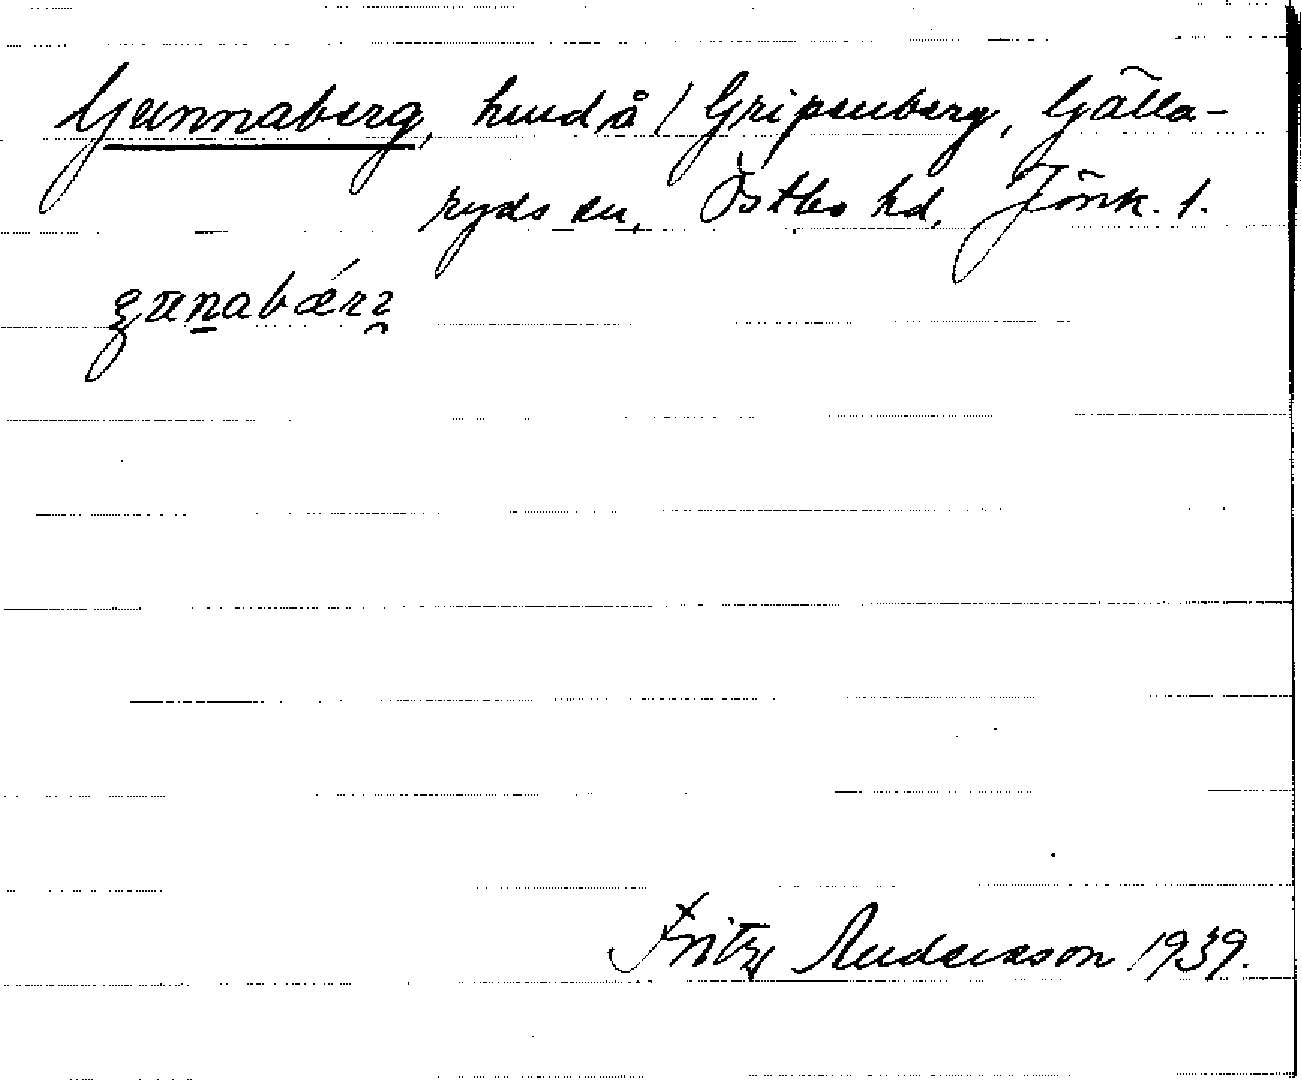 Gunnaberg, hud å / Gripenberg, Gälla-
ryds sn, Östbo hd, Jönk. l.
Fritz Anderson 1939.